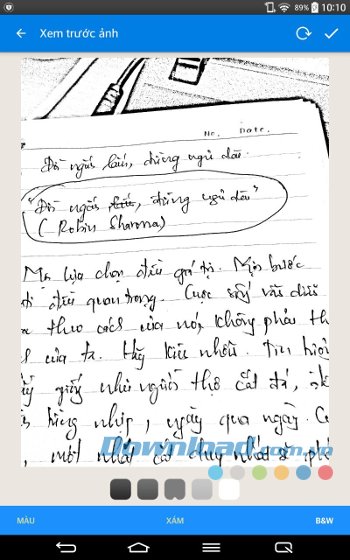 89% 10:10
Xem trước ảnh
No. Date.
Đời ngắn lắm, đừng ngủ dài
"Đời ngắn lắm, đừng ngủ dài"
(- Robin Sharma)
Mà lựa chọn điều giá trị. Một bước
đi điều quan trọng. Cuộc sống vẫn diễn
theo cách của nó, không phải th
của ta. Hãy kiên nhẫn. Tin
giống như người thợ cắt đá,
hàng nhịp, ngày qua ngày. C
, một nhát cắt duy nhất
Download.com.vn
MÀU XÁM B&W